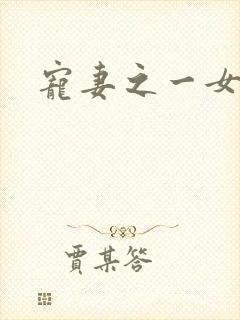 寵妻之一女
賈某答